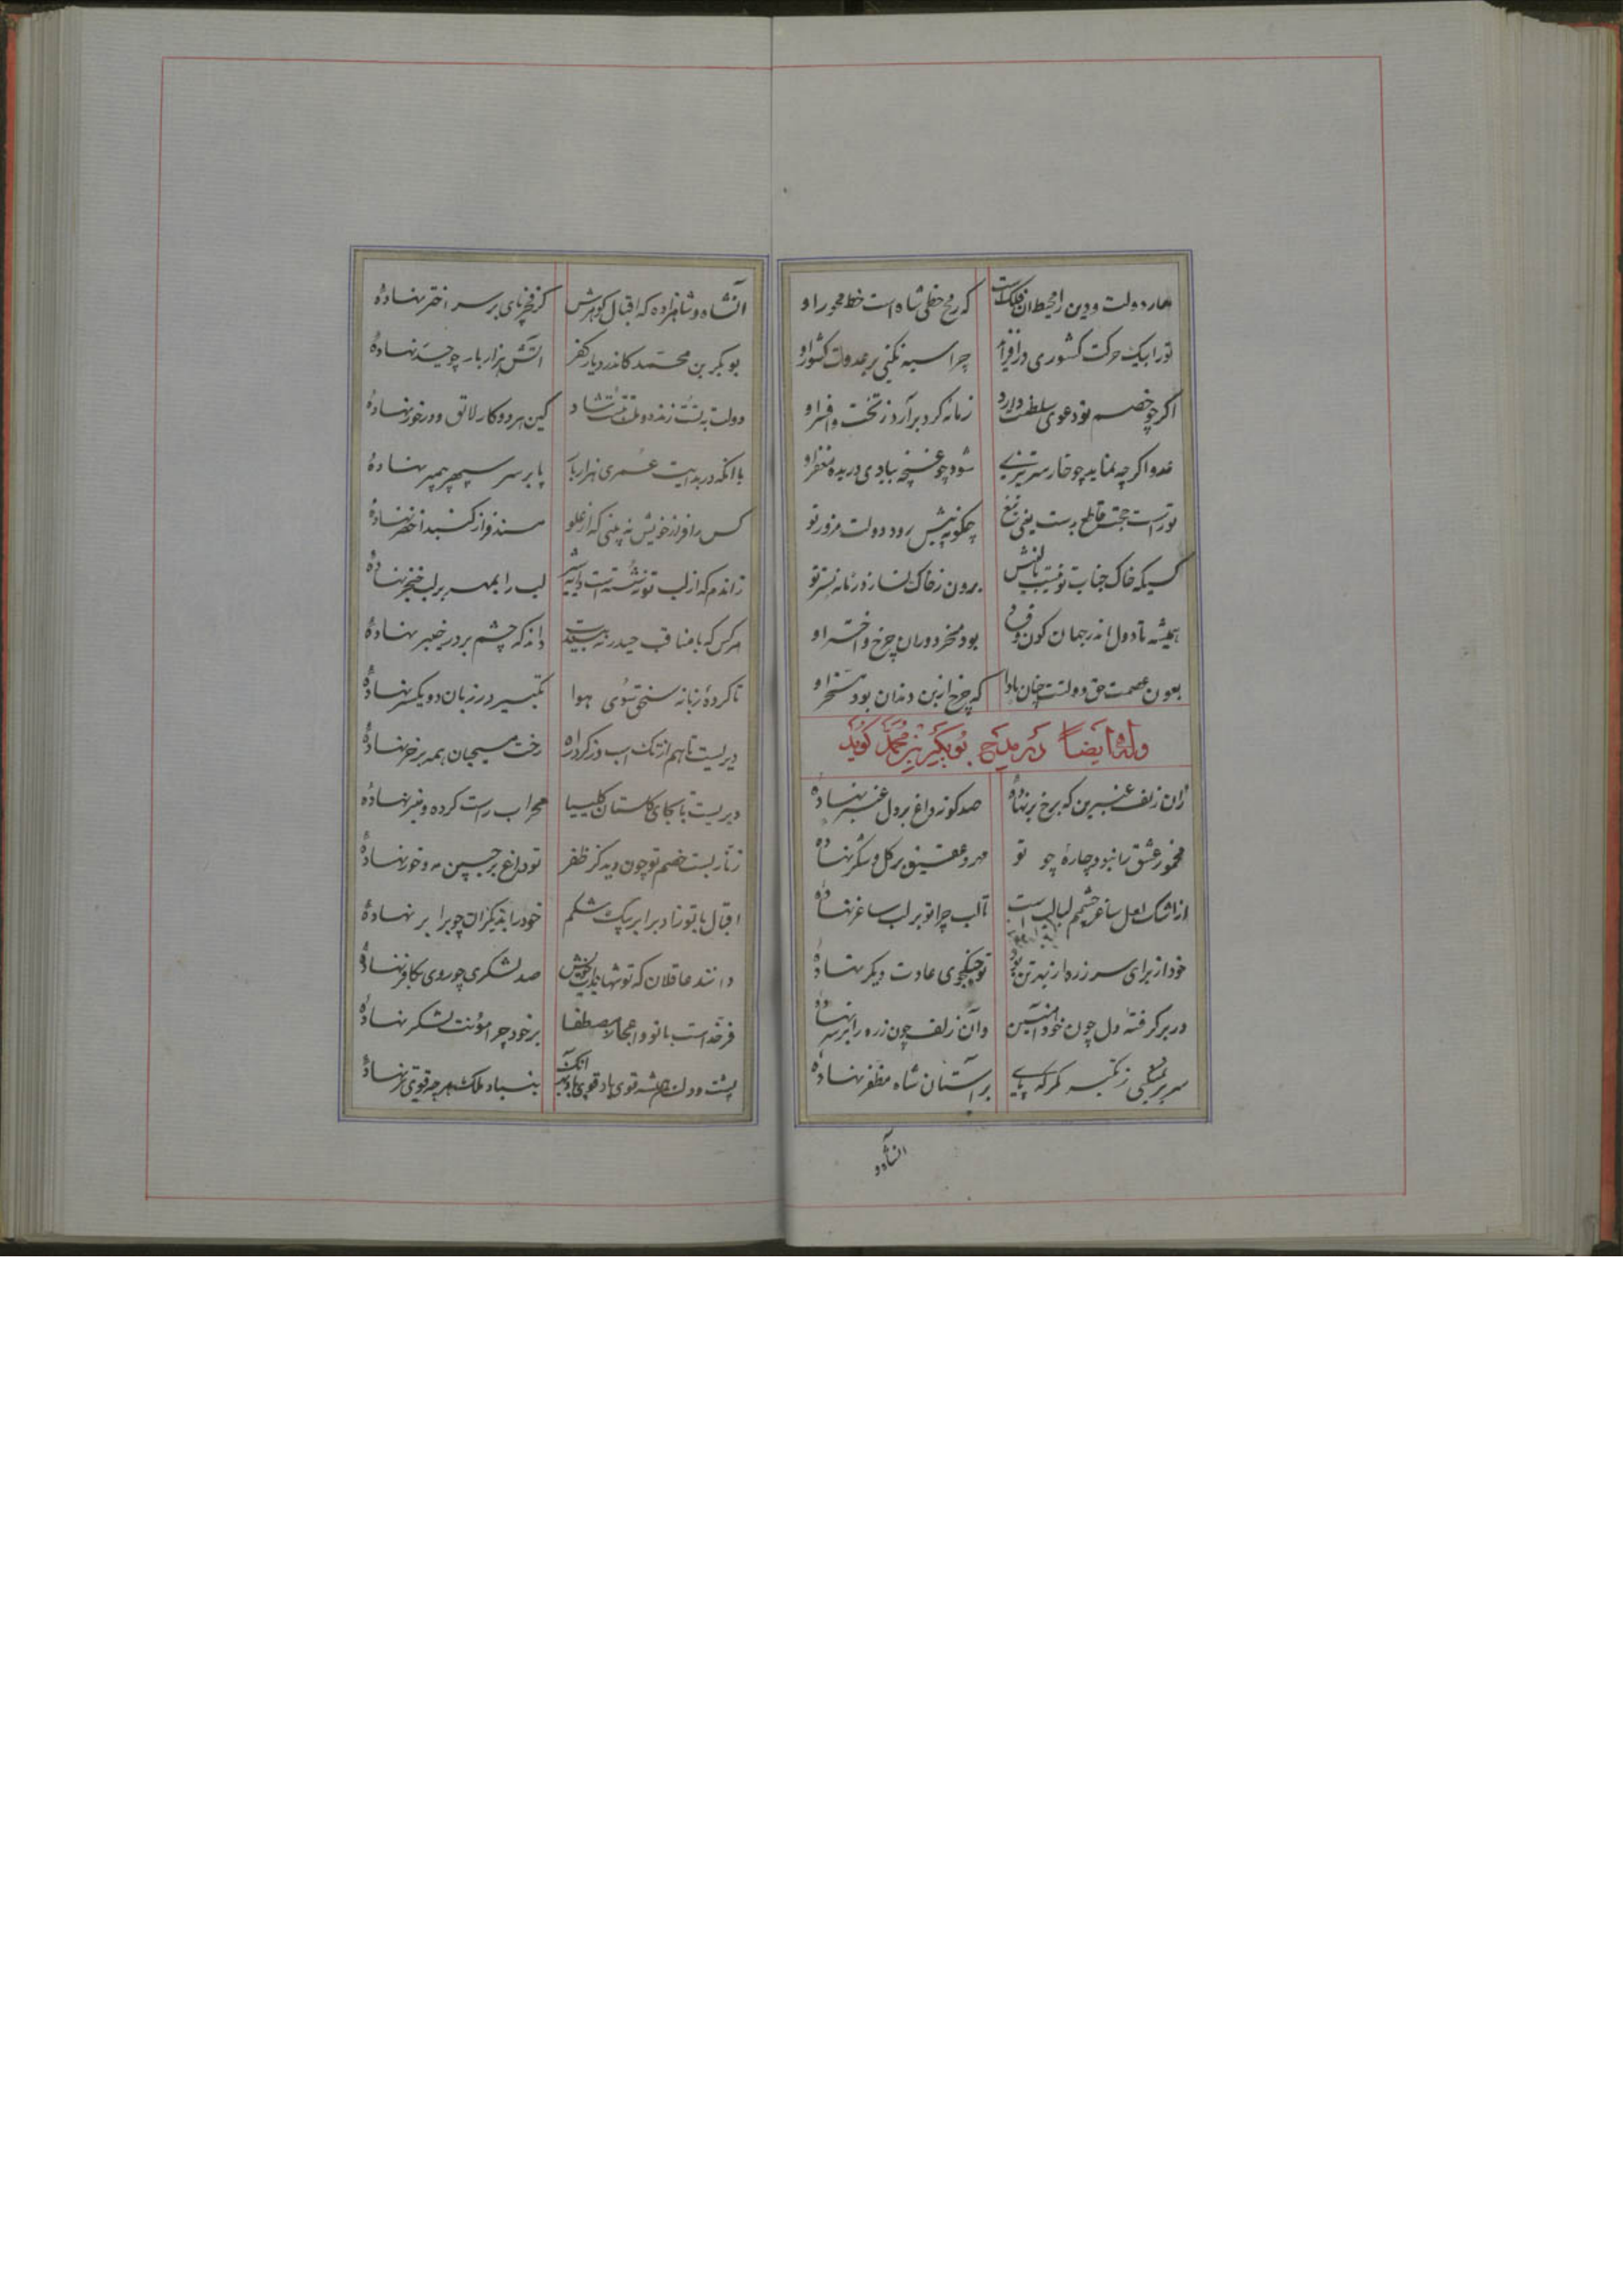 مدار دولت و دین را محیط آن فلکست که رمح خطی شاه است خط محور او
تو را بیک حرکت کشوری در افزاید چرا سیه نکنی بر عدوت کشور او
اگر چو خصم تو دعوی سلطنت دارد زمانه گرد برآرد ز تخت و افسر او
عدو اگر چه نماید چو خار سرتیزی شود چو غنچه ببادی دریده مغفر او
تو راست حجت قاطع بدست یعنی تیغ چگونه پیش رود دولت مزور تو
کسیکه خاک جناب تو نیست بالینش برون ز خاک نسازد زمانه بستر تو
همیشه تا دول اندر جهان کون و فساد بود مسخر دوران چرخ و اختر او
بعون عصمت حق دولتت چنان بادا که چرخ ازین دندان بود مسخر او
وله ایضاً در مدح بوبکر بن محمد گوید
زان زلف عنبرین که برخ بر نهادهٔ صد گونه داغ بر دل عنبر نهادهٔ
مخمور عشق را نبود چارهٔ چو تو مهر و عقیق بر گل و شکر نهادهٔ
از اشک لعل ساغر چشمم لبالب است تا لب چرا تو بر لب ساغر نهادهٔ
خود از برای سر زره از بهر تن بود تو جنگجوی عادت دیگر نهادهٔ
در بر گرفتهٔ دل چون خود آهنین وآن زلف چون زره را بر سر نهادهٔ
سر بر نمیکنی ز تکبر مگر که پای بر آستان شاه مظفر نهادهٔ
آنشاه و
آنشاه و شاهزاده که اقبال گوهرش کز فخر پای بر سر اختر نهادهٔ
بوبکر بن محمد کاندر دیار کفر آتش هزار بار چو حیدر نهادهٔ
دولت به تست زنده و ملکت بتست شاد کین هر دو کار لایق و درخور نهادهٔ
با آنکه در بدایت عمری هزار بار پا بر سر سپهر پیمبر نهادهٔ
کس را فراز خویش نه بینی که از علو مسند فراز گنبد اخضر نهادهٔ
زاندم که از لب تو نشستست دایه شیر لب را بمهر بر لب خنجر نهادهٔ
هر کس که با مناقب حیدر نه بیندت داند که چشم بر در خیبر نهادهٔ
تا کردهٔ زبانه سنجق بسوی هوا تکبیر در زبان دو پیکر نهادهٔ
دیریست تا بسم از تک اسب درکرد راه رخت مسیحیان همه بر خر نهادهٔ
دیریست تا بجای گلستان کلیسیا محراب راست کرده و منبر نهادهٔ
زنار بست خصم تو چون دید کز ظفر تو داغ بر جبین مه و خور نهادهٔ
اقبال با تو زاد برابر بیک شکم خود را بدیگران چو برابر نهادهٔ
دانند عاقلان که تو تنها بذات خویش صد لشکری چو روی بکافر نهادهٔ
فرخنده است بر خود چرا مؤنت لشکر نهادهٔ
پشت و دولت همیشه قوی باد بنیاد ملک هر چه قوی‌تر نهادهٔ